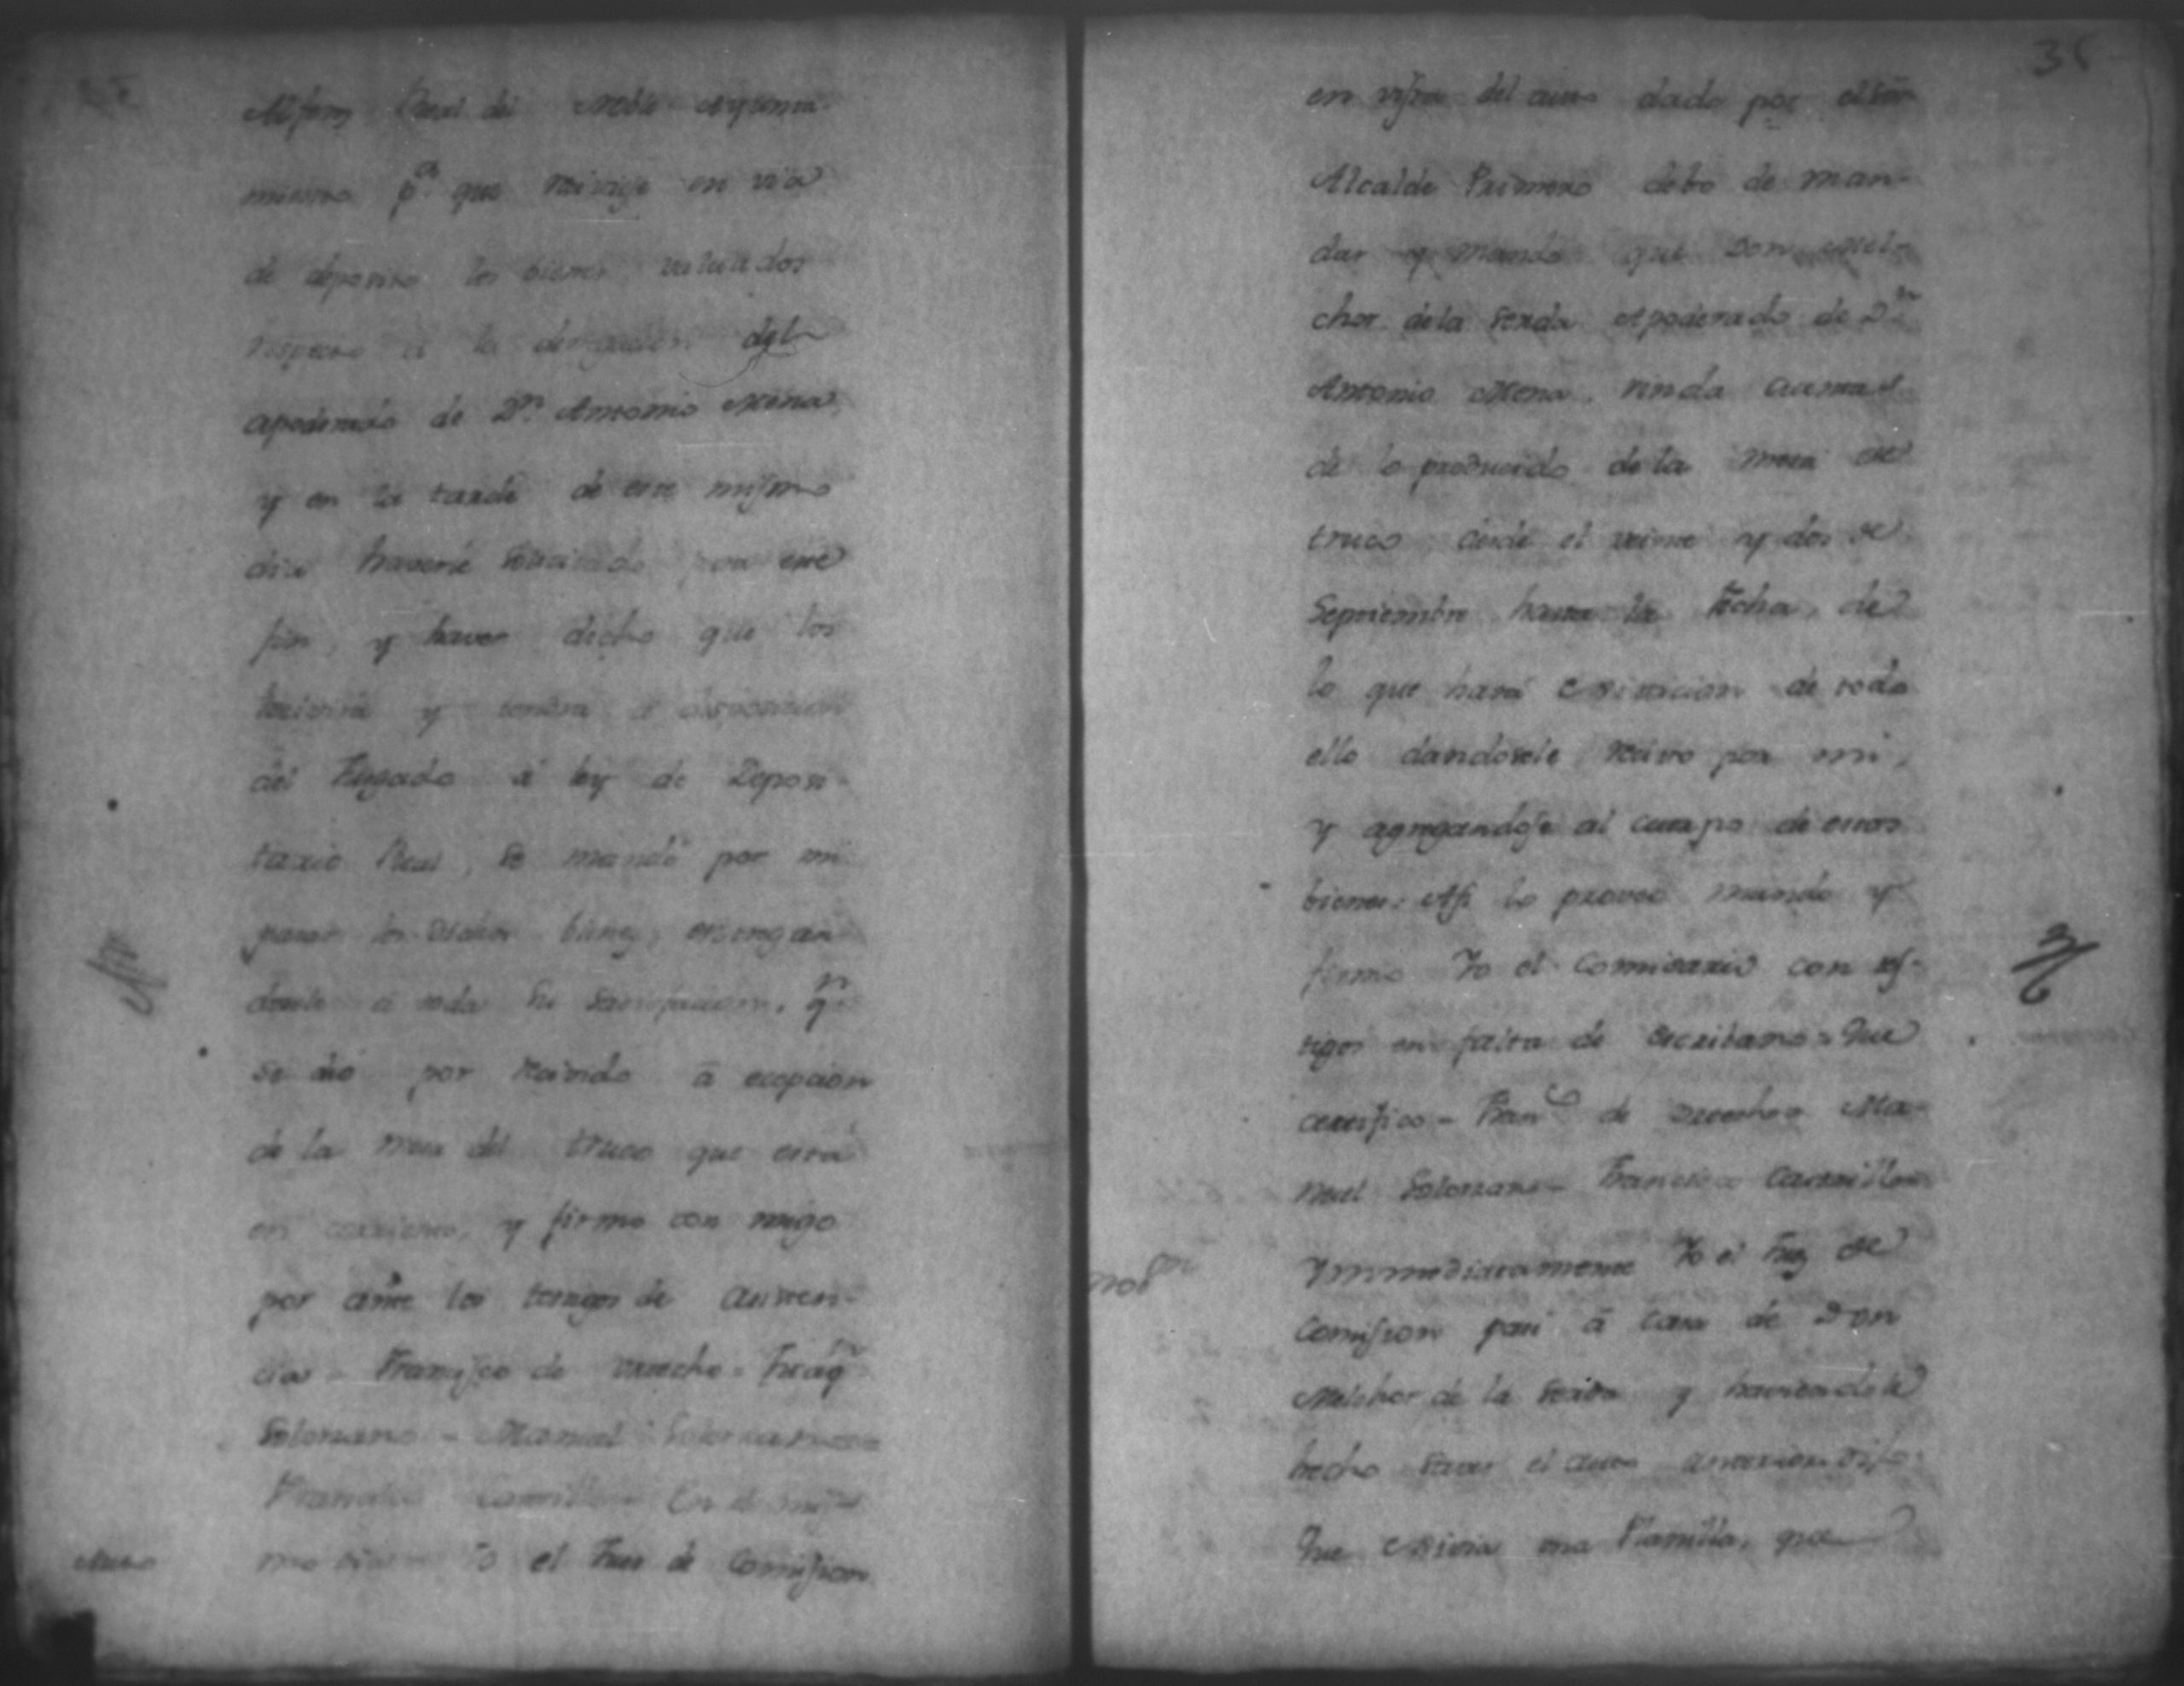 Alferes Real del Noble Ayunta-
miento pª que reciviese en via
de deposito los bienes valuados
respecto a la denegacion del
apoderado de Dn. Antonio Mena
y en la tarde de este mismo
dia haverse solicitado para este
fin, y haver dicho que los
reciviria y tendra a disposicion
del Juzgado á ley de Deposi-
tario Real, se mandó por mi
pasar los dichos bienes, entregan
dosele a toda su satisfaccion, qn
se dio por recivido â ecepcion
de la mesa del truco que está
en corriente, y firmo con migo
por ante los testigos de asisten-
cia = Francisco de Urrecho = Joaqn
Solorzano = Manuel Solorzano =
Francisco Carrillo = En el mis-
mo dia Yo el Juez de Comission
Auto
35
en vista del auto dado por el Sôr
Alcalde Primero debo de man-
dar y mando que Don Mel-
chor de la Serda Apoderado de Dn
Antonio Mena rinda cuenta
de lo producido de la mesa de
truco desde el veinte y dos de
Septiembre hasta la fecha, de
lo que hará esivicion de todo
ello dandosele recivo por mi,
y agregandose al cuerpo de estos
bienes. Assi lo proveo mando y
firmo Yo el Comisario con tes-
tigos en falta de Escribano = Que
certifico = Franco de Urrecho = Ma-
nuel Solorzano = Francisco Carrillo =
Notn
Ynmediatamente Yo el Juez de
Comission pasé â casa de Don
Melchor de la Serda y haviendole
hecho saver el auto anterior dijo
Que esivia una Planilla, que